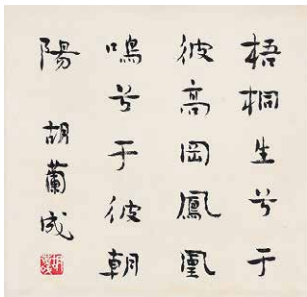 梧桐生兮于
彼高岡鳳凰
鳴兮于彼朝
陽 胡蘭成